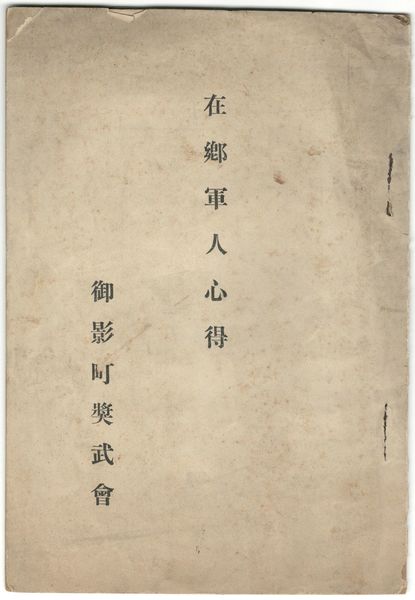 在鄕軍人心得
御影町奬武會